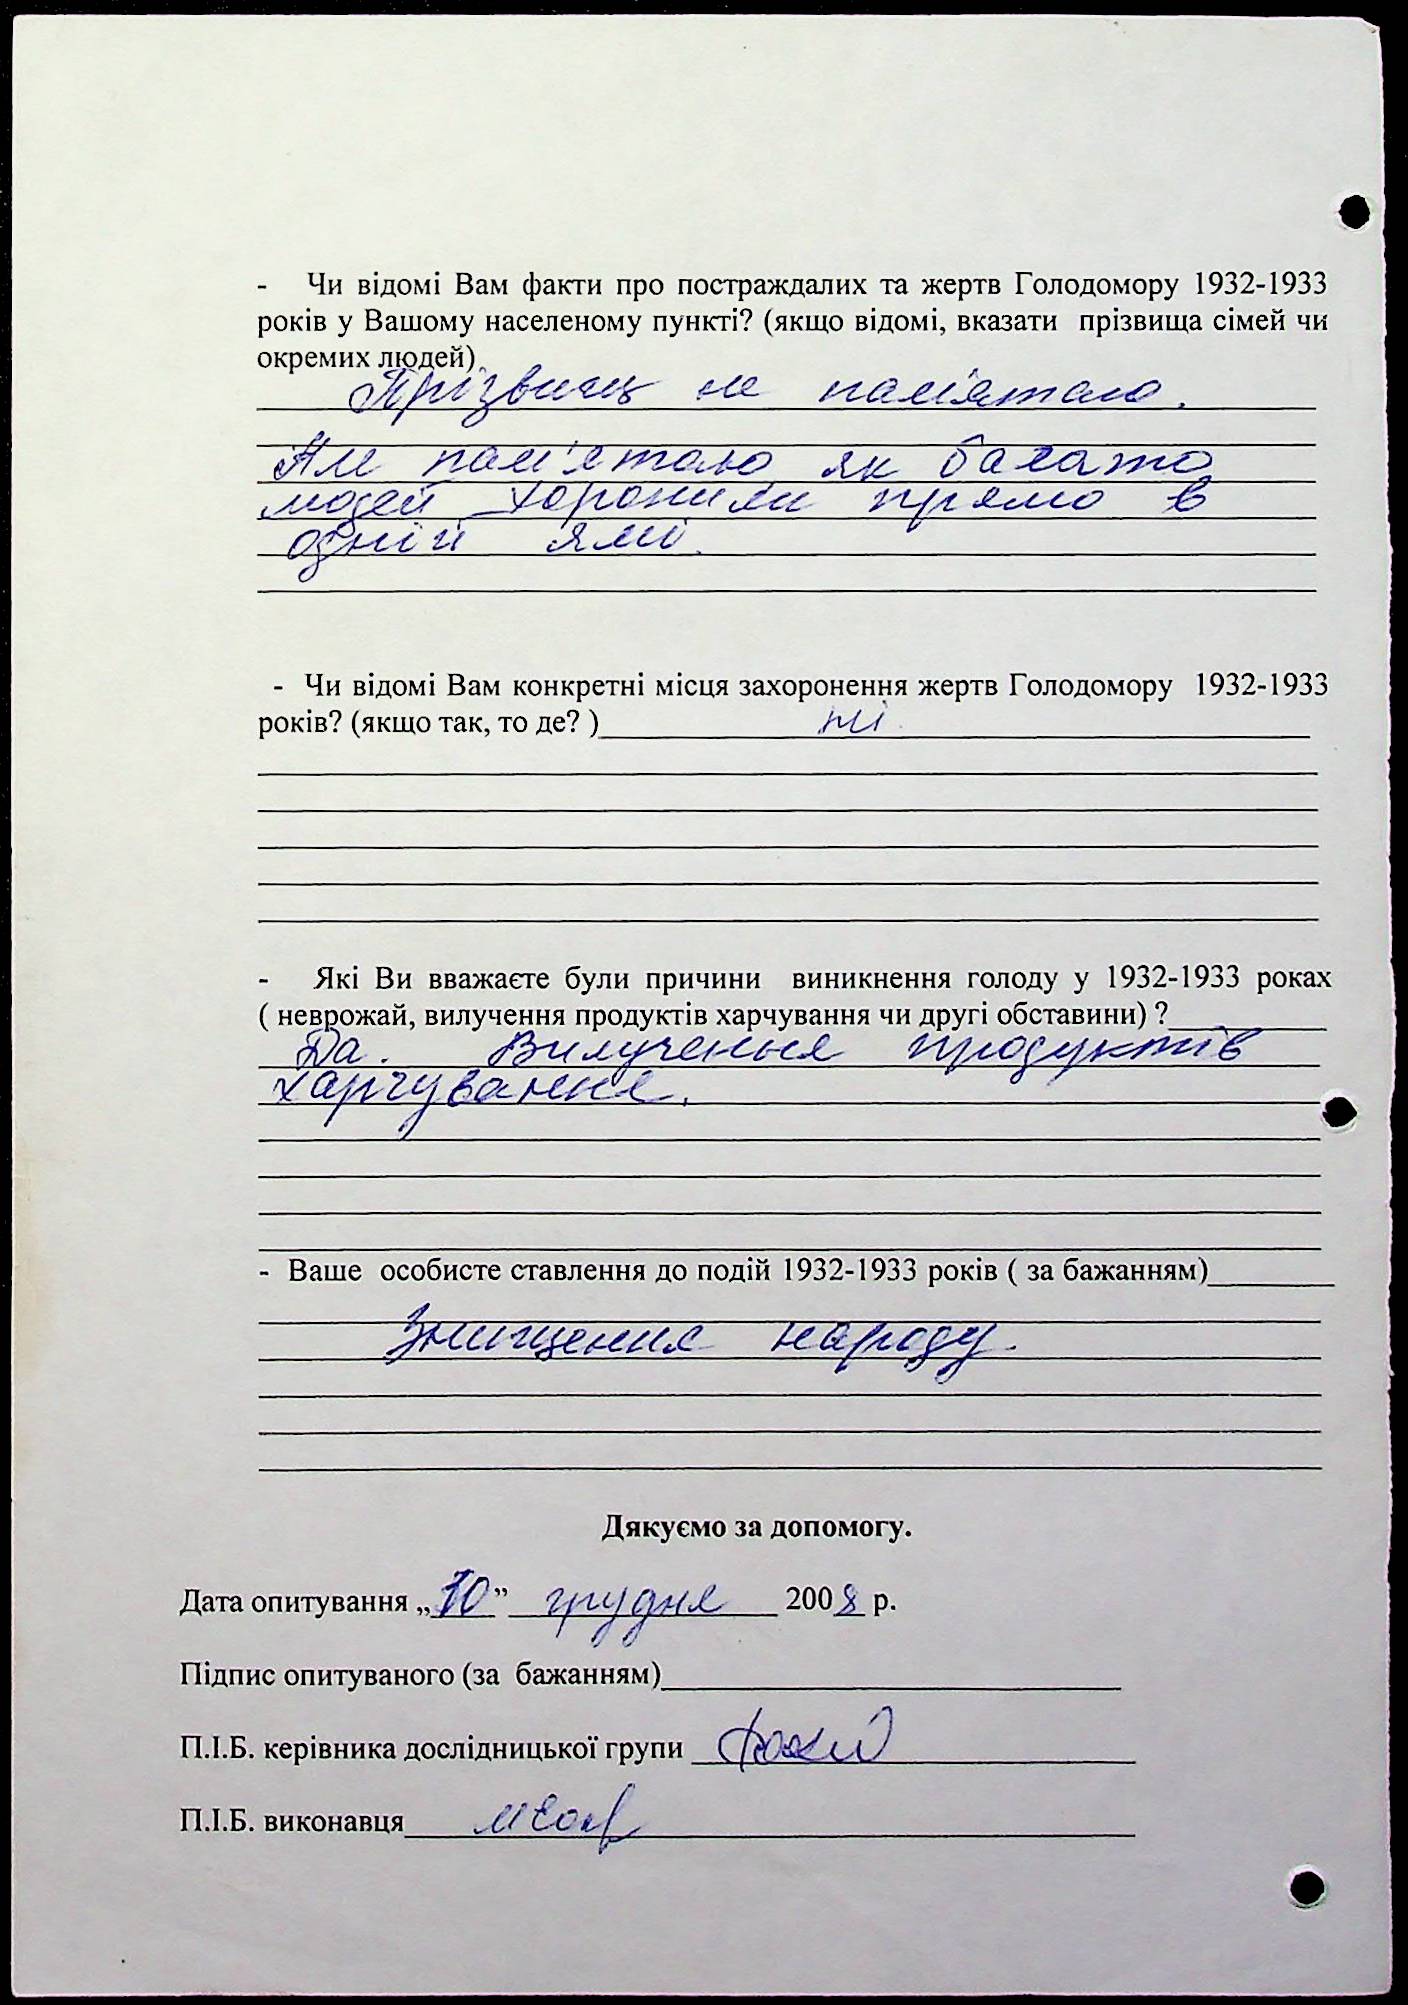 - Чи відомі Вам факти про постраждалих та жертв Голодомору 1932-1933
років у Вашому населеному пункті? (якщо відомі, вказати прізвища сімей чи
окремих людей)
Прізвищ не пам'ятаю.
Але пам'ятаю як багато
людей хоронили прямо в
одній ямі.
- Чи відомі Вам конкретні місця захоронення жертв Голодомору 1932-1933
років? (якщо так, то де? ) ні
- Які Ви вважаєте були причини виникнення голоду у 1932-1933 роках
( неврожай, вилучення продуктів харчування чи другі обставини) ?
Да. Вилученья продуктів
харчування.
- Ваше особисте ставлення до подій 1932-1933 років ( за бажанням)
Знищення народу.
Дякуємо за допомогу.
Дата опитування „10" грудня 2008 р.
Підпис опитуваного (за бажанням)
П.І.Б. керівника дослідницької групи
П.І.Б. виконавця